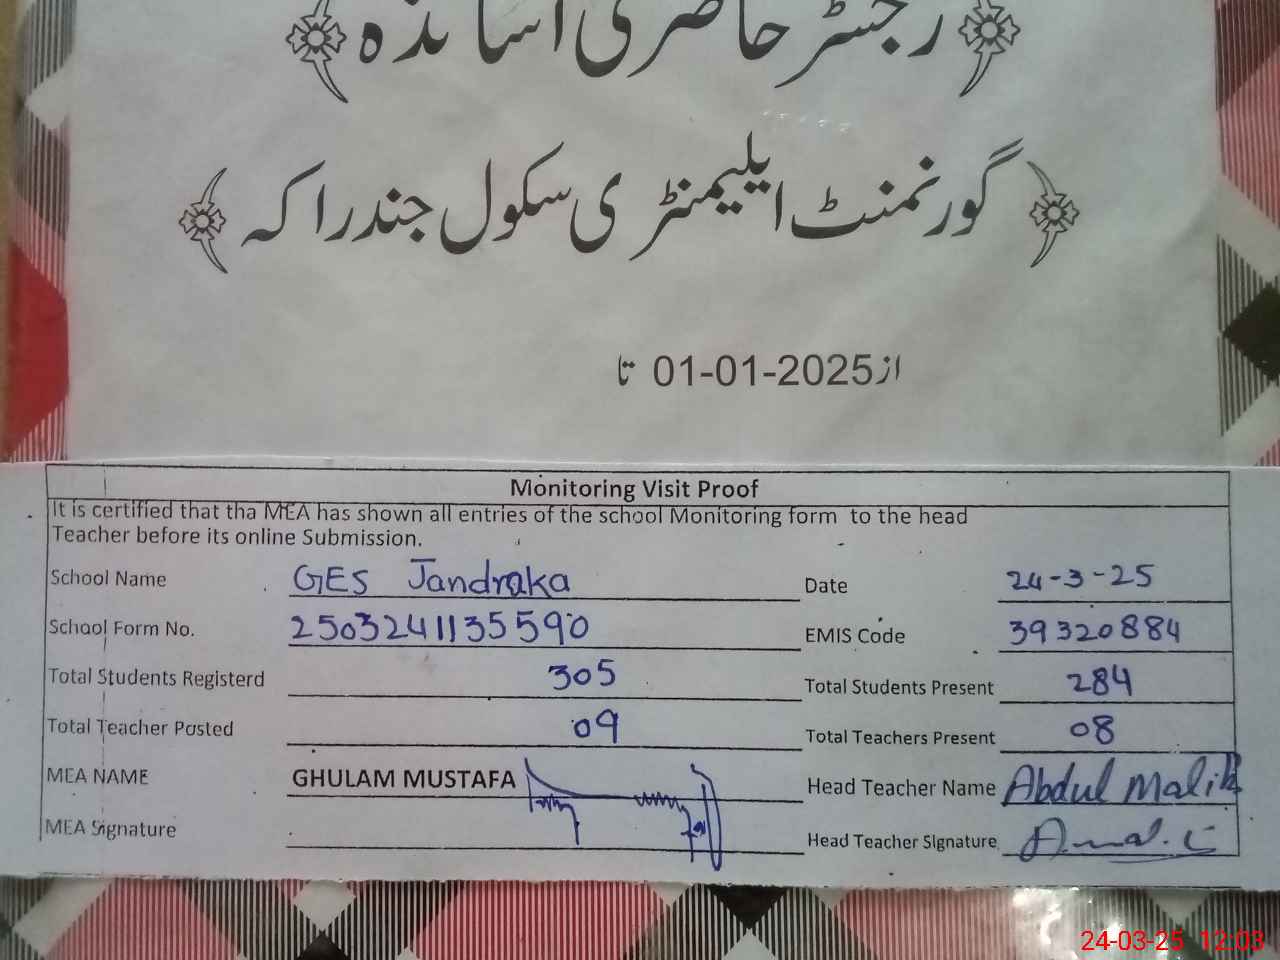 رجسٹر حاضری اساتذہ
گورنمنٹ ایلیمنٹری سکول جندراکہ
از 01-01-2025 تا
Monitoring Visit Proof
It is certified that tha MEA has shown all entries of the school Monitoring form to the head
Teacher before its online Submission.
School Name GES Jandraka Date 24-3-25
School Form No. 2503241135590 EMIS Code 39320884
Total Students Registerd 305 Total Students Present 284
Total Teacher Posted 09 Total Teachers Present 08
MEA NAME GHULAM MUSTAFA Head Teacher Name Abdul Malik
MEA Signature Head Teacher Signature
24-03-25 12:03